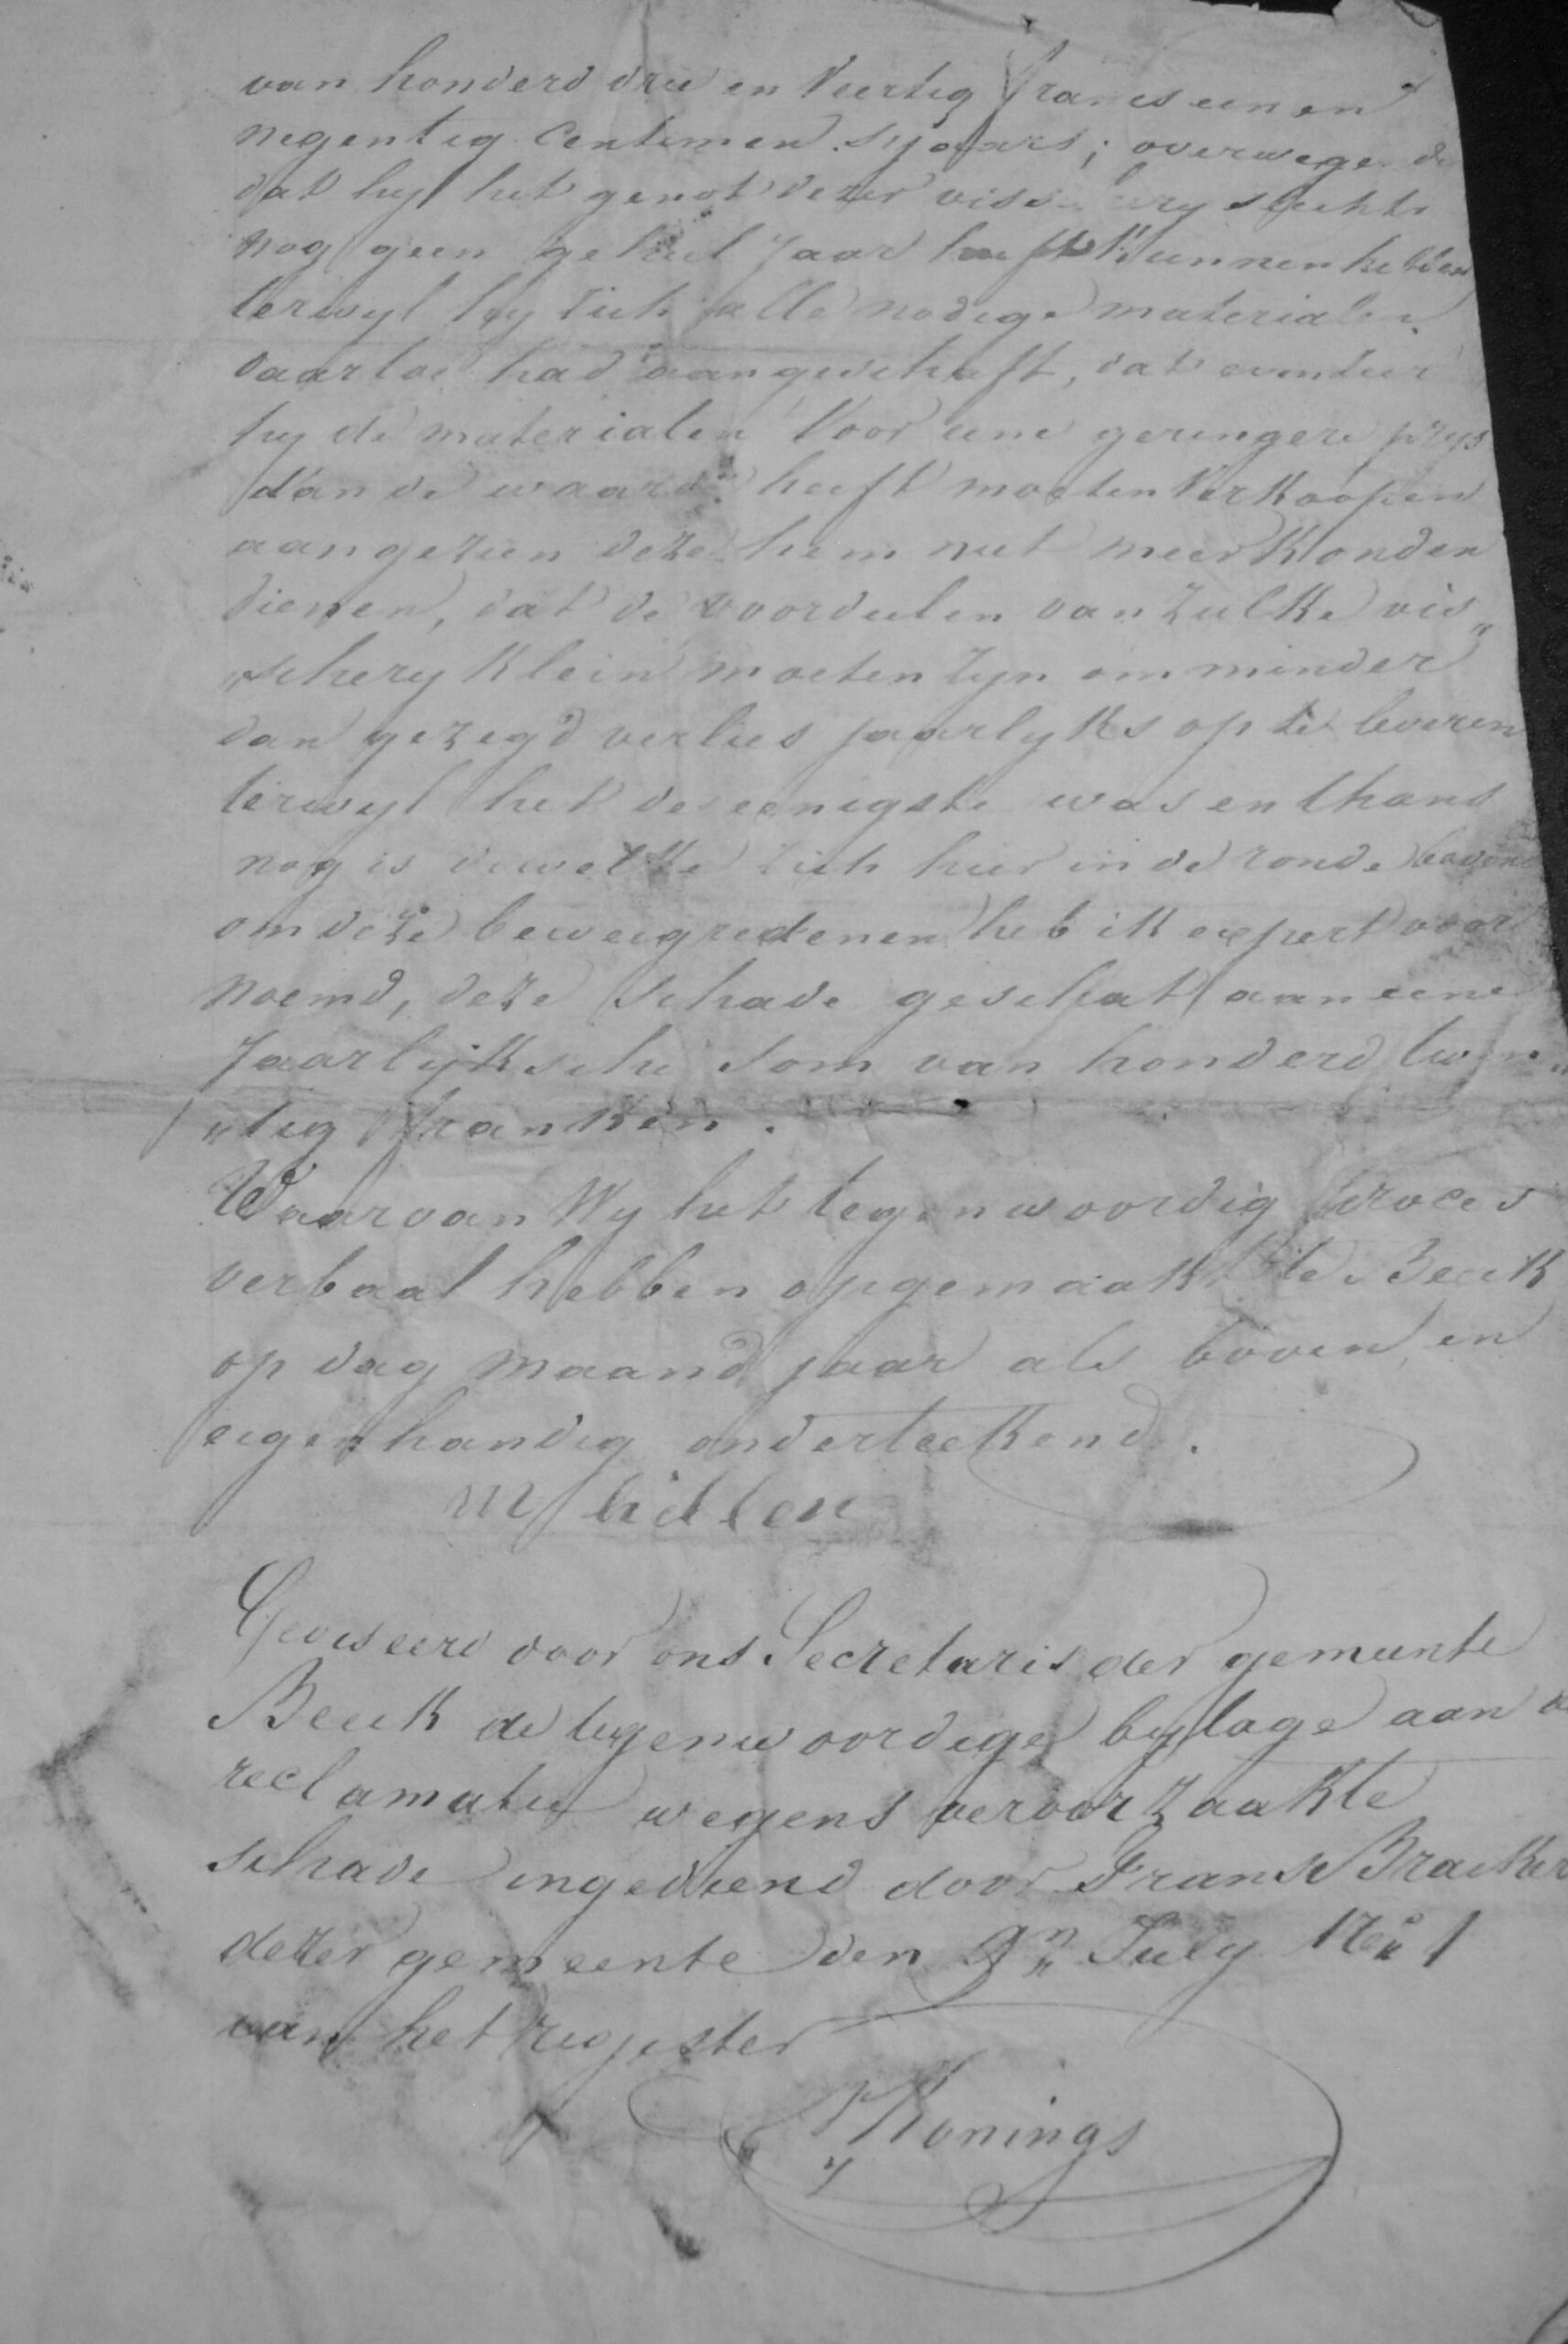 van honderd drie en Veertig francs een en
negentig Centimen sjaars; overwegende
dat hy het genot dezer visschery slechts
nog geen geheel Jaar heeft kunnen hebben
terwyl hy zich alle nodige materialen
daartoe had aangeschaft, dat
hy de materialen Voor eene geringere prys
dan de waarde heeft moeten Verkoopen
aangezien deze hem niet meer konden
dienen, dat de voordeelen van zulke vis„
„schery klein moeten zyn om minder
dan gezegd verlies jaarlyks op te leveren
terwyl het de eenigste was en thans
nog is dewelke zich hier in de ronde bevond
om deze beweegredenen heb ik expert voor
noemd, deze schade geschat aan eene
Jaarlijksche som van honderd twin„
„tig franken.
Waarvan Wy het tegenwoordig proces
verbaal hebben opgemaakt te Beek
op dag maand jaar als boven en
eigenhandig onderteekend.
M
Geviseerd door ons Secretaris der gemeente
Beek de tegenwoordige bylage aan de
reclamatie wegens veroorzaakte
schade ingediend door Frans
dezer gemeente den 9n July
van het register
Konings